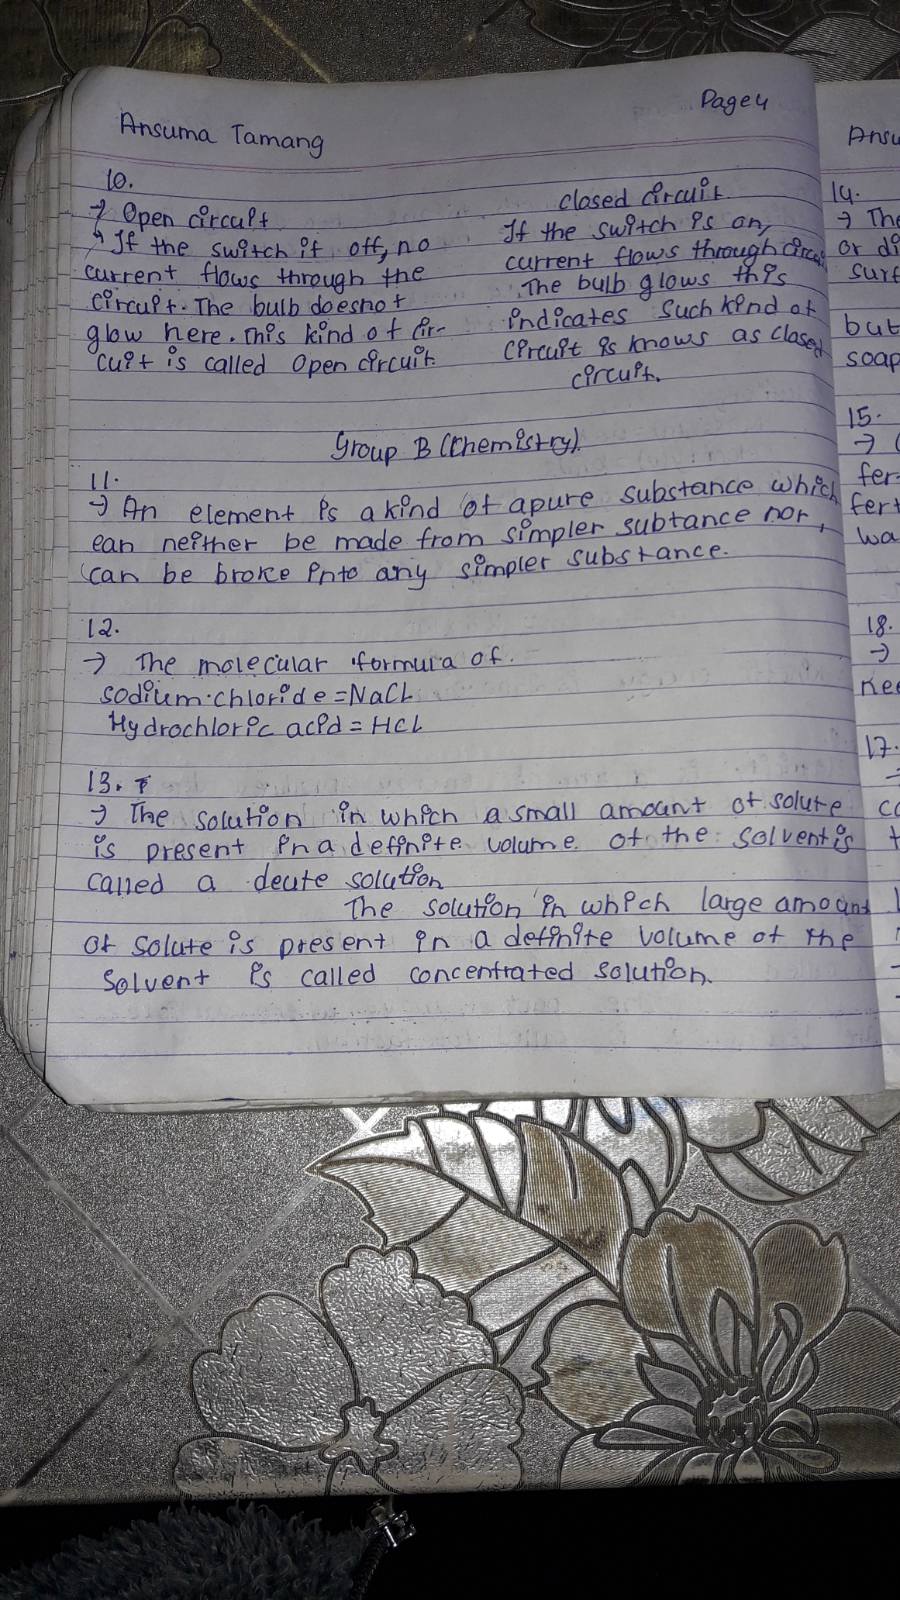 Ansuma Tamang
Page 4
10.
→ Open circuit
If the switch if off, no
current flows through the
circuit. The bulb doesnot
glow here. This kind of cir-
cuit is called Open circuit.
closed circuit.
If the switch is on,
current flows through
The bulb glows this
indicates such kind of
circuit is knows as closed
circuit.
Group B (Chemistry)
11.
→ An element is a kind of apure substance which
can neither be made from simpler subtance nor,
can be broke into any simpler substance.
12.
→ The molecular formura of.
sodium chloride = NaCL
Hydrochloric acid = HCL
13.
→ The solution in which a small amount of solute
is present in a definite volume of the solvent is
called a deute solution
The solution in which large amount
of solute is present in a definite volume of the
solvent is called concentrated solution.
Ansu
14.
→ The
or di
surf
but
soap
15.
→
fer-
fert
wa
18.
→
nee
17.